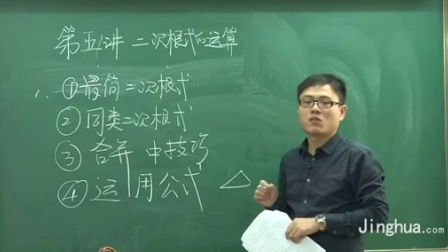 第五讲 二次根式的运算
①最简二次根式
②同类二次根式
③合并中技巧
④运用公式 △
Jinghua.com